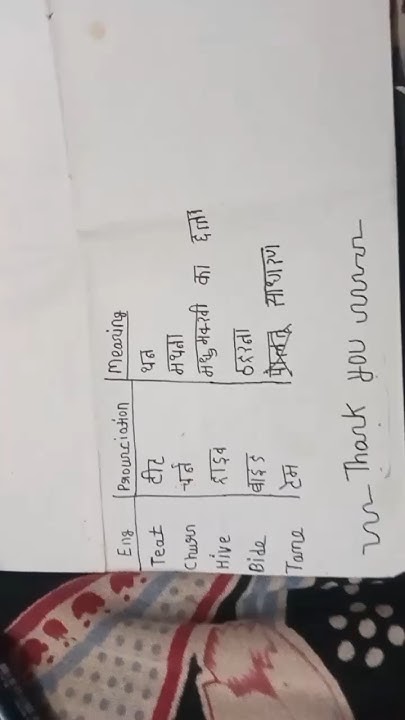 Eng Pronunciation Mearing
Teat टीट थन
Churn चर्न मथना
Hive हाइव मधुमक्खी का छत्ता
Bide बाइड ठहरना
Tame टेम साधारण
Thank you